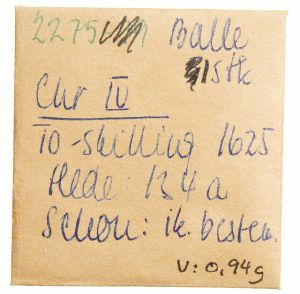 2275 Balle
1 stk
Chr IV
10-skilling 1625
Hede: 134 a
Schou: ik. besten.
V: 0,94g